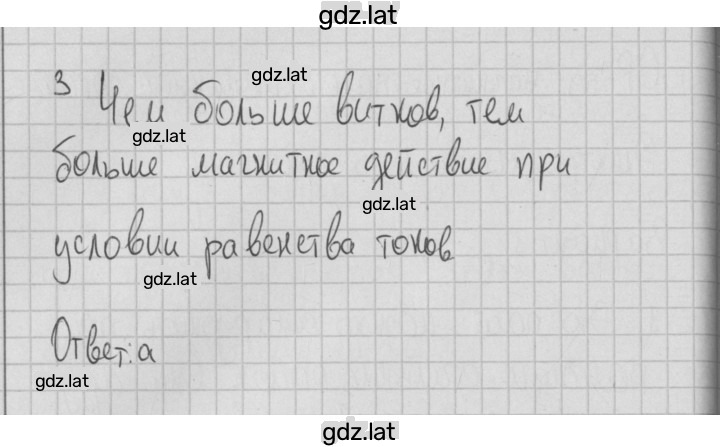 gdz.lat
3
gdz.lat
Чем больше витков, тем
gdz.lat
больше магнитное действие при
gdz.lat
условии равенства токов
gdz.lat
Ответ: а
gdz.lat
gdz.lat